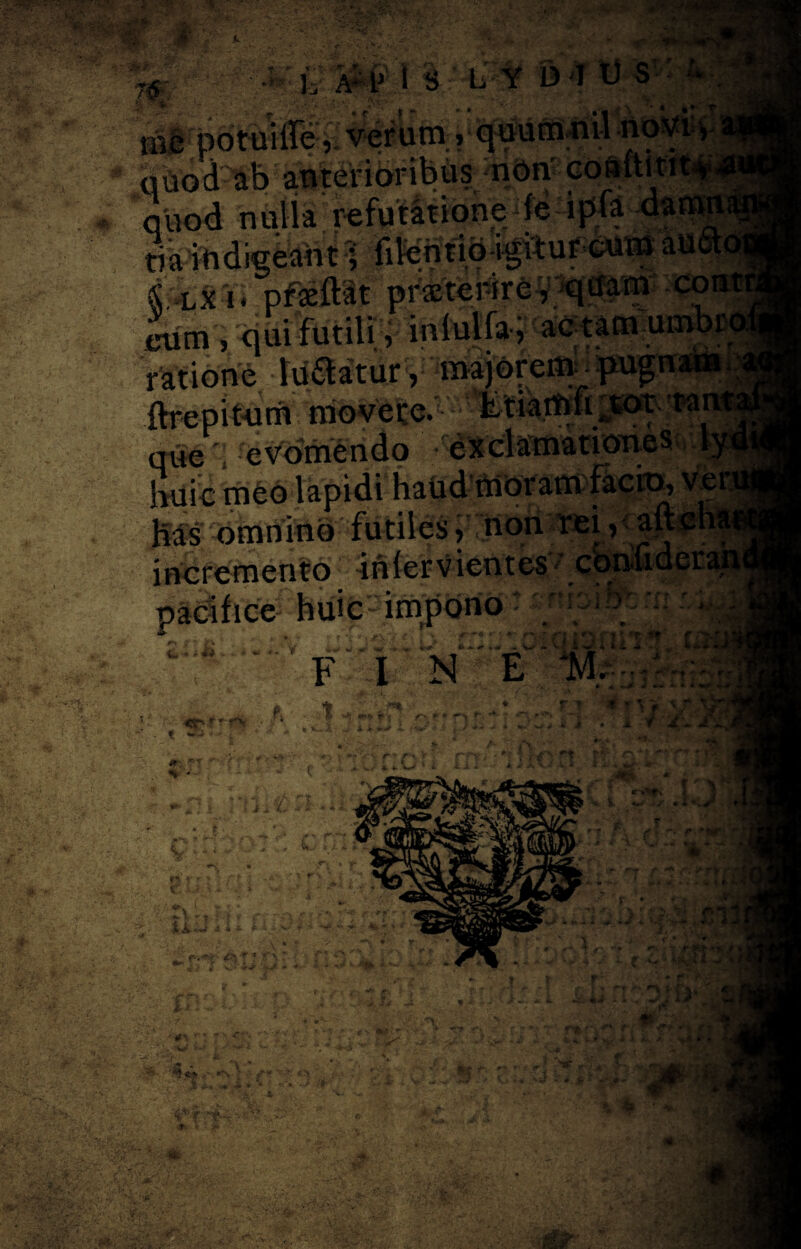 76 LAPIS LYDIUS
me potuiſſe, verum, quum nil novi,
quod ab anterioribus non conſtitit,
quod nulla refutatione ſe ipſa
tia indigeant; ſilentio igitur cum
§. LXI. præſtat præterire, quam
eum, qui futili, inſulſa, ac tam
ratione luctatur, majorem pugnam
ſtrepitum movere. Etiamſi tot
que evomendo exclamationes
huic meo lapidi haud moram facio,
has omnino futiles, non rei,
incremento inſervientes
pacifice huic impono
FINEM.